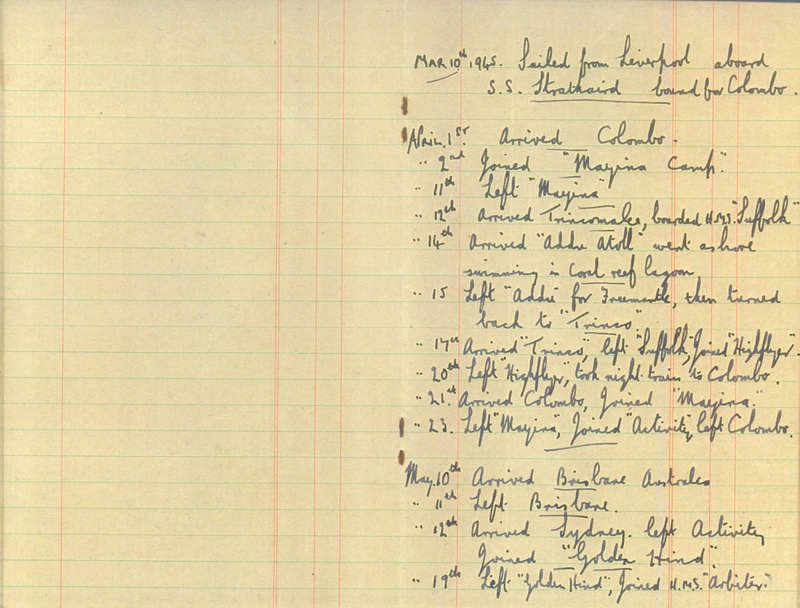 MAR 10th 1945. Sailed from Liverpool aboard
S.S. Strathaird bound for Colombo.
April. 1st. Arrived Colombo.
" 2nd Joined "Mayina Camp".
" 11th Left "Mayina"
" 12th Arrived Trincomalee, boarded H.M.S. "Suffolk"
" 14th Arrived "Addu Atoll" went ashore
swimming in Coral reef lagoon.
" 15 Left "Addu" for Freemantle, then turned
back to "Trinco".
" 17th Arrived "Trinco", left "Suffolk", Joined "Highflyer".
" 20th Left "Highflyer", took night train to Colombo.
" 21st Arrived Colombo, Joined "Mayina."
" 23. Left "Mayina", Joined "Activity", left Colombo.
May. 10th Arrived Brisbane Australia
" 11th Left Brisbane.
" 12th Arrived Sydney. left Activity
Joined "Golden Hind".
" 19th Left "Golden Hind", Joined H.M.S. "Arbiter."